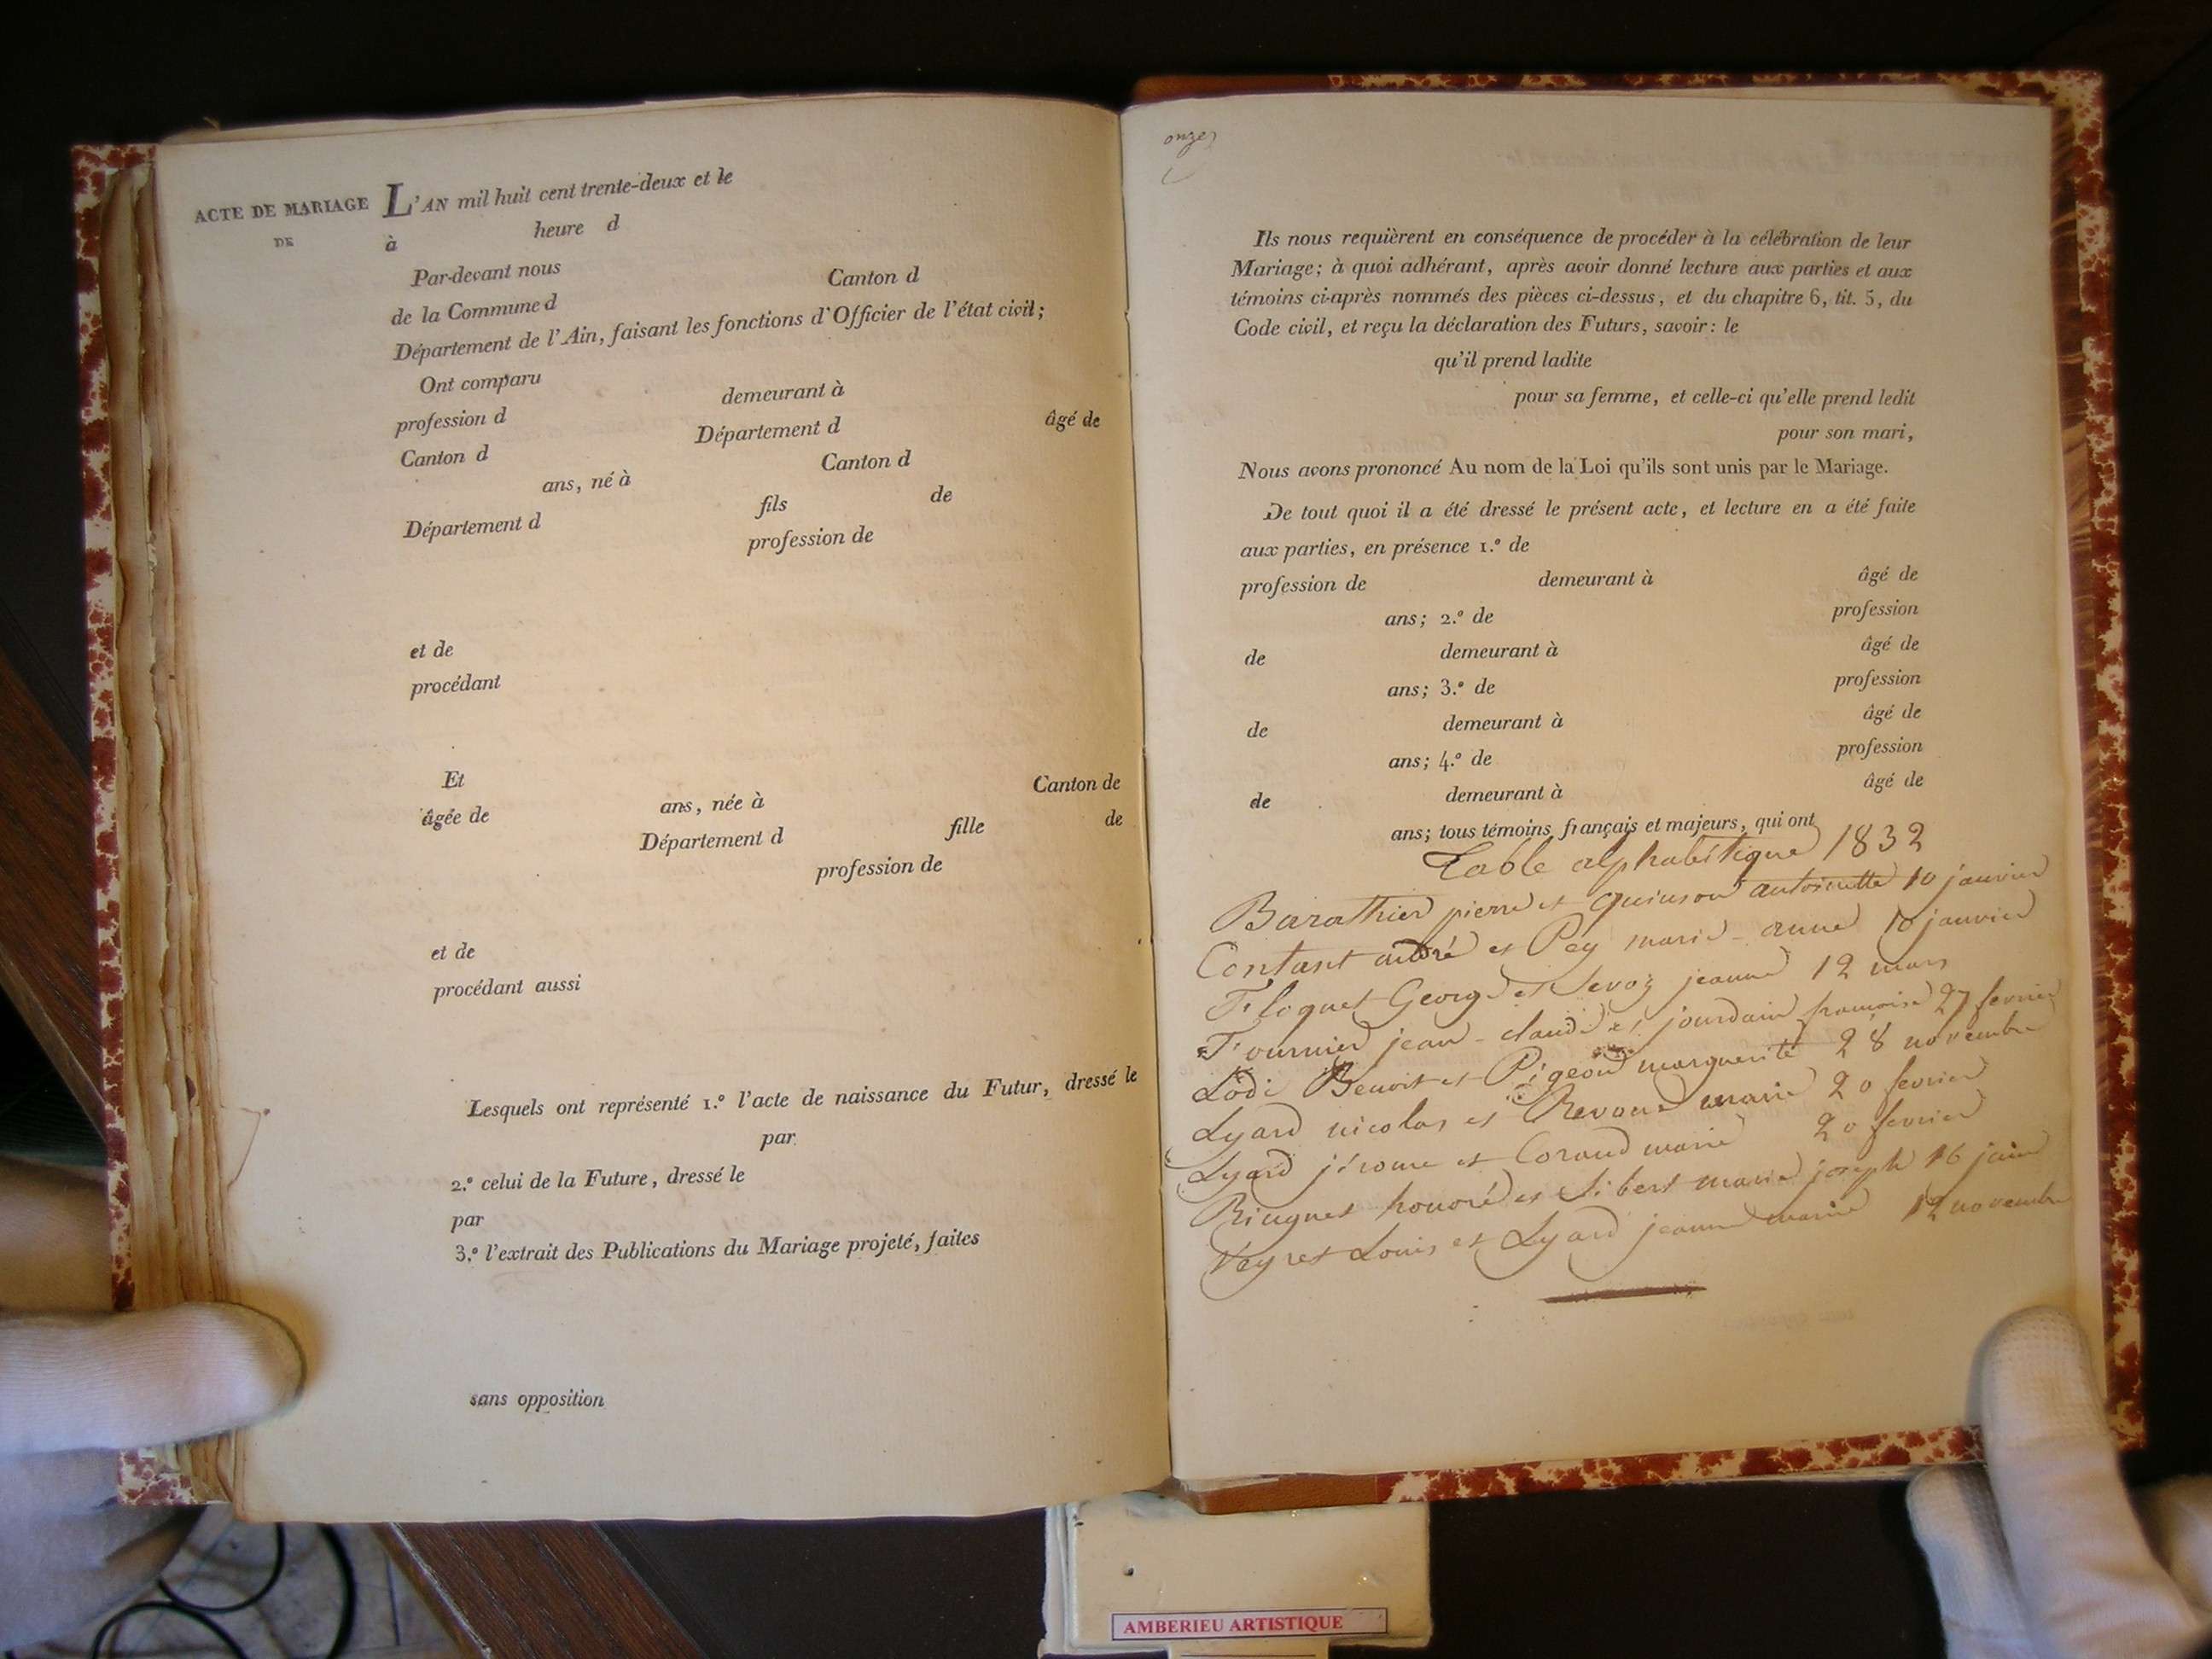 ACTE DE MARIAGE L'AN mil huit cent trente-deux et le
DE à heure d
Par-devant nous
de la Commune d Canton d
Département de l'Ain, faisant les fonctions d'Officier de l'état civil;
Ont comparu
profession d demeurant à
Canton d Département d âgé de
ans, né à Canton d
Département d fils de
profession de
et de
procédant
Et
âgée de ans, née à Canton de
Département d fille de
profession de
et de
procédant aussi
Lesquels ont représenté 1.º l'acte de naissance du Futur, dressé le
par
2.º celui de la Future, dressé le
par
3.º l'extrait des Publications du Mariage projeté, faites
sans opposition
onze
Ils nous requièrent en conséquence de procéder à la célébration de leur
Mariage; à quoi adhérant, après avoir donné lecture aux parties et aux
témoins ci-après nommés des pièces ci-dessus, et du chapitre 6, tit. 5, du
Code civil, et reçu la déclaration des Futurs, savoir: le
qu'il prend ladite
pour sa femme, et celle-ci qu'elle prend ledit
pour son mari,
Nous avons prononcé Au nom de la Loi qu'ils sont unis par le Mariage.
De tout quoi il a été dressé le présent acte, et lecture en a été faite
aux parties, en présence 1.º de
profession de demeurant à âgé de
ans; 2.º de profession
de demeurant à âgé de
ans; 3.º de profession
de demeurant à âgé de
ans; 4.º de profession
de demeurant à âgé de
ans; tous témoins français et majeurs, qui ont
Table alphabétique 1832
Barathier pierre et quinson antoinette 10 janvier
Contant andré et Pey marie-anne 10 janvier
Floquet George et Sevoz jeanne 12 mars
Fournier jean-claude et jourdain francoise 27 fevrier
Lodi Benoit et Pigeon marguerite 28 novembre
Lyard nicolas et marie 20 fevrier
Lyard jérome et Coraud marie 20 fevrier
Ringuet honoré et Sibert marie joseph 16 juin
Veyret Louis et Lyard jeanne marie 12 novembre
AMBERIEU ARTISTIQUE